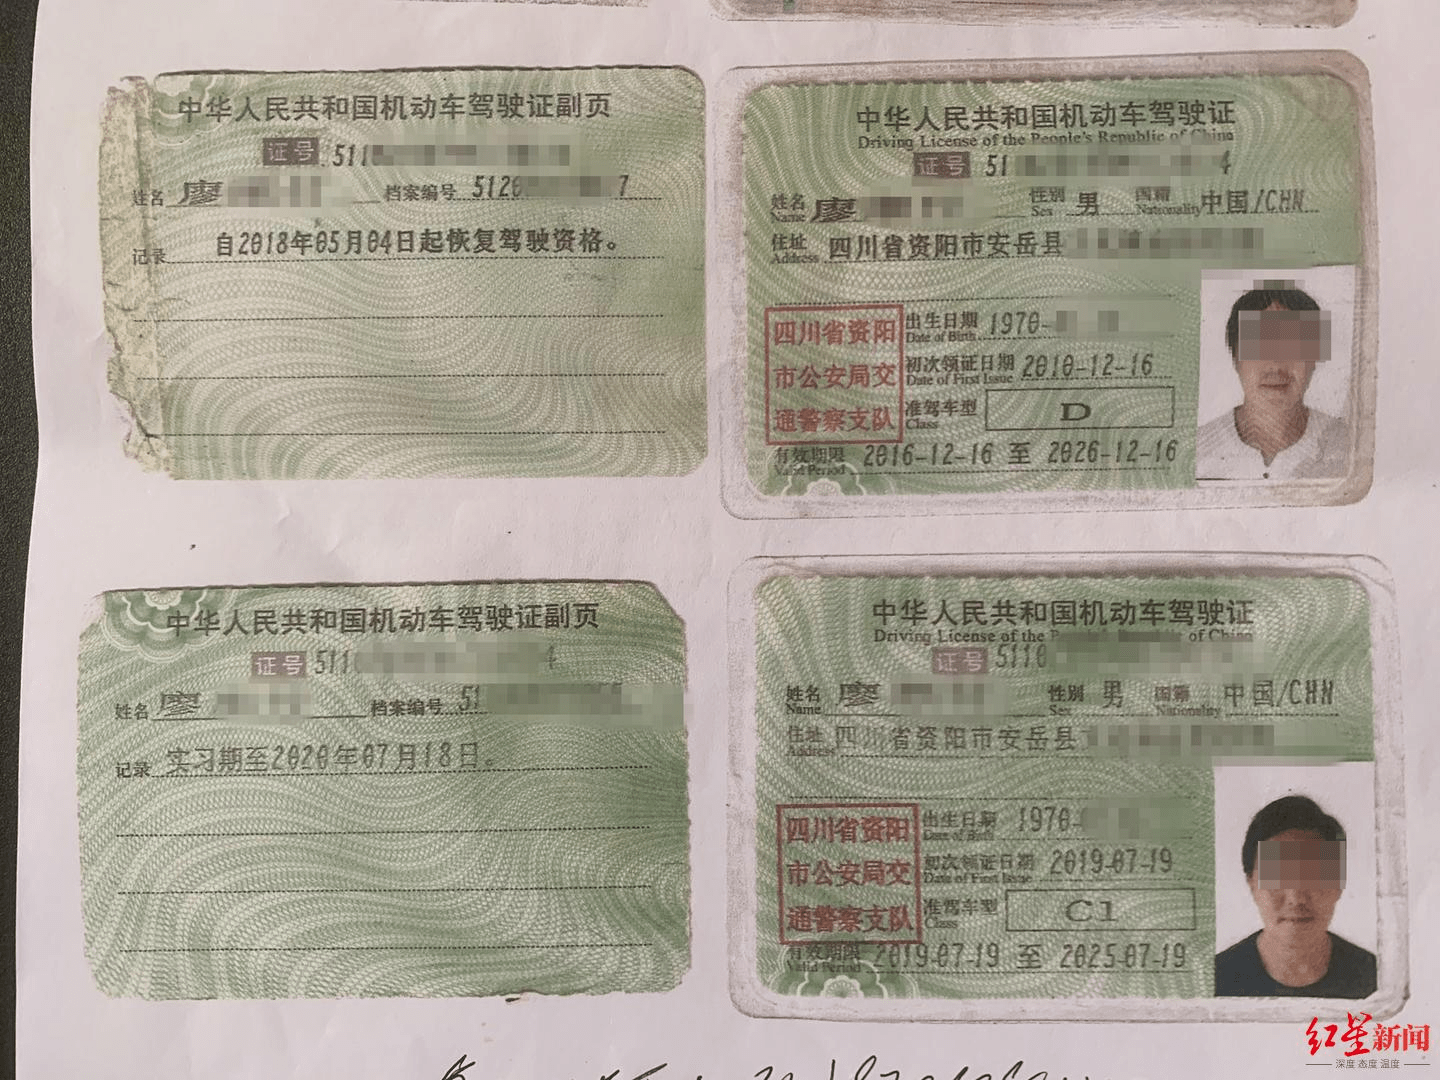 中华人民共和国机动车驾驶证副页
证号 5110
姓名 廖 档案编号 5120 7
记录 自2018年05月04日起恢复驾驶资格。
中华人民共和国机动车驾驶证
Driving License of the People's Republic of China
证号 51 4
姓名 廖 性别 男 国籍 中国/CHN
Name Sex Nationality
住址 四川省资阳市安岳县
Address
四川省资阳
市公安局交
通警察支队
出生日期 1970-
Date of Birth
初次领证日期 2010-12-16
Date of First Issue
准驾车型 D
Class
有效期限 2016-12-16 至 2026-12-16
Valid Period
中华人民共和国机动车驾驶证副页
证号 5110 4
姓名 廖 档案编号 51
记录 实习期至2020年07月18日。
中华人民共和国机动车驾驶证
Driving License of the People's Republic of China
证号 5110
姓名 廖 性别 男 国籍 中国/CHN
Name Sex Nationality
住址 四川省资阳市安岳县
Address
四川省资阳
市公安局交
通警察支队
出生日期 1970-
Date of Birth
初次领证日期 2019-07-19
Date of First Issue
准驾车型 C1
Class
有效期限 2019-07-19 至 2025-07-19
Valid Period
红星新闻
深度 态度 温度